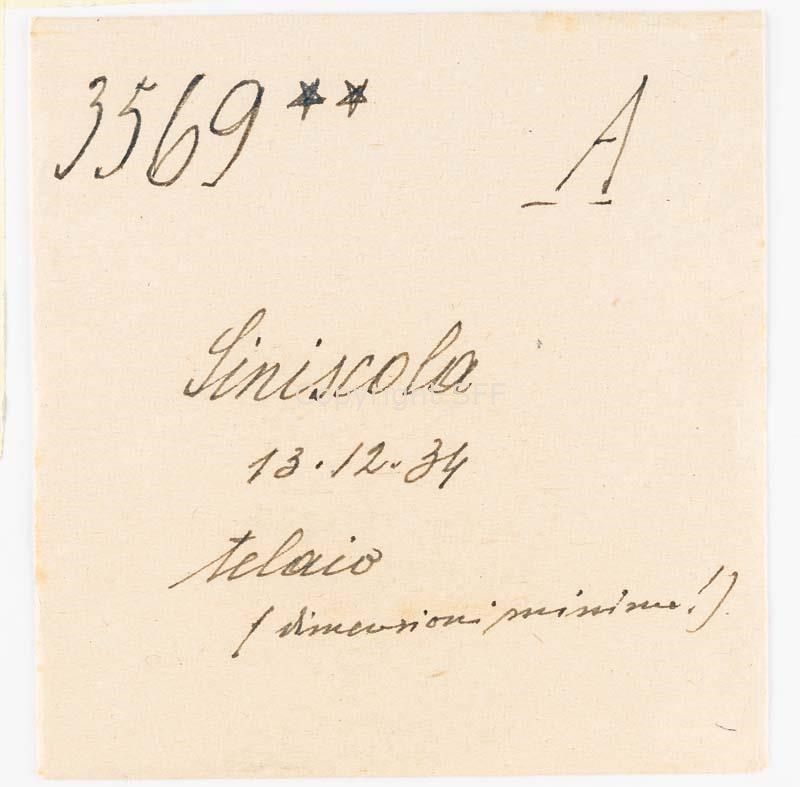 3569 ** A
Siniscola
Copyright: SFF
13.12.34
telaio
(dimensioni minime!)